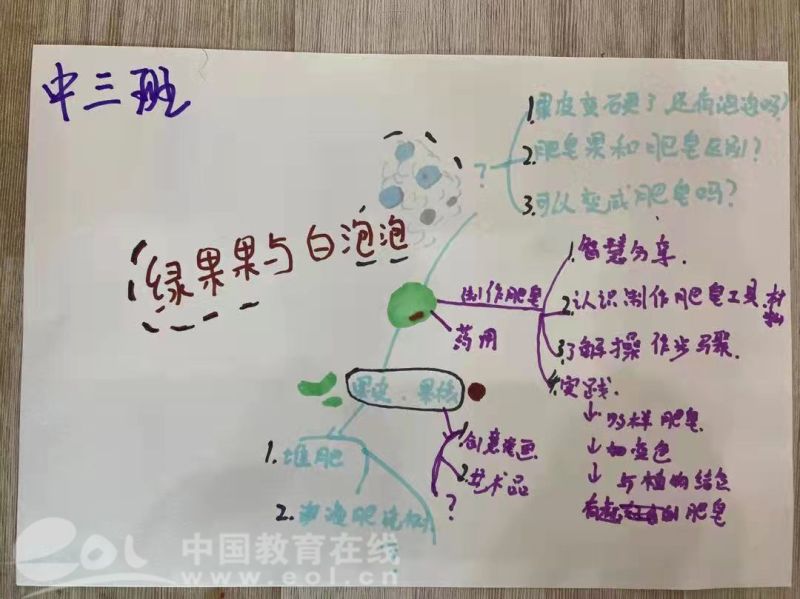 中三班
绿果果与白泡泡
?
1.果皮变石更了还有泡泡吗?
2.肥皂果和肥皂区别?
3.可以变成肥皂吗?
制作肥皂
药用
1.智慧分享.
2.认识制作肥皂工具.材料
3.了解操作步骤.
4.实践.
↓
↓
↓ 与植物结合
有趣 肥皂
果皮.果核
1.创意 画
2.艺术品
?
1.堆肥
2. 肥
eol 中国教育在线
www.eol.cn